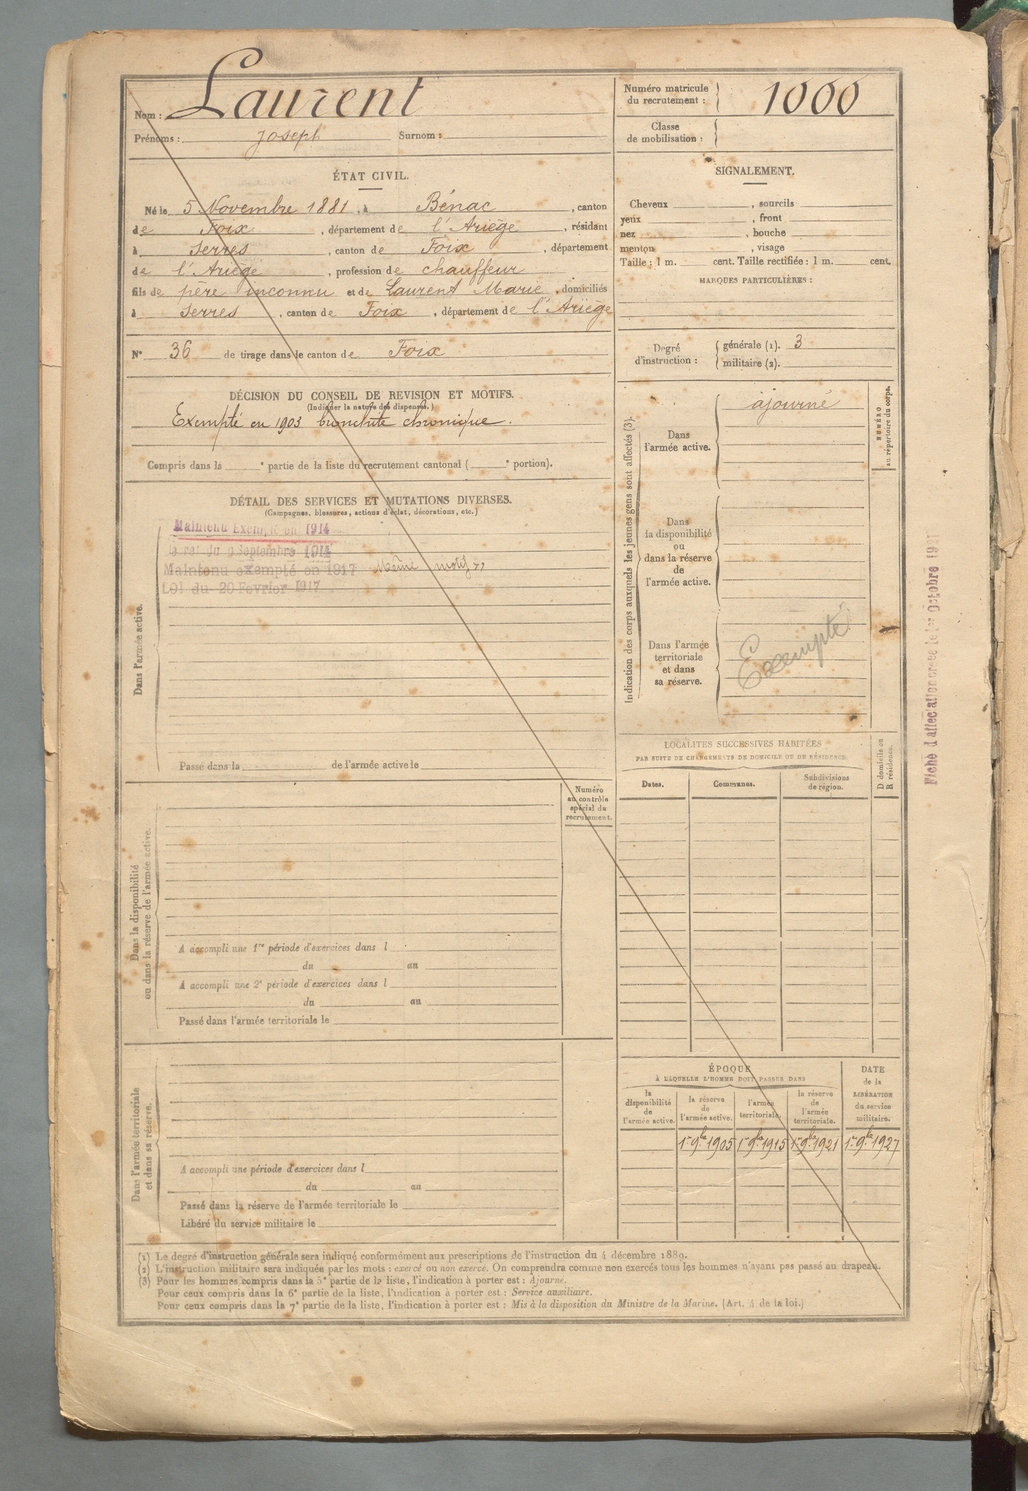 Nom : Laurent
Prénoms : Joseph Surnom :
Numéro matricule du recrutement : 1000
Classe de mobilisation :
ÉTAT CIVIL.
Né le 5 Novembre 1881, à Bénac, canton
de Foix, département de l'Ariège, résidant
à Serres, canton de Foix, département
de l'Ariège, profession de chauffeur
fils de père inconnu et de Laurent Marie, domiciliés
à Serres, canton de Foix, département de l'Ariège
N° 36 de tirage dans le canton de Foix
SIGNALEMENT.
Cheveux , sourcils
yeux , front
nez , bouche
menton , visage
Taille : 1 m. cent. Taille rectifiée : 1 m. cent.
MARQUES PARTICULIÈRES :
Degré d'instruction : générale (1). 3
militaire (2).
DÉCISION DU CONSEIL DE REVISION ET MOTIFS.
(Indiquer la nature des dispenses.)
Exempté en 1903 bronchite chronique.
Compris dans la e partie de la liste du recrutement cantonal ( e portion).
DÉTAIL DES SERVICES ET MUTATIONS DIVERSES.
(Campagnes, blessures, actions d'éclat, décorations, etc.)
Dans l'armée active.
Maintenu Exempté en 1914
du 9 Septembre 1914
Maintenu exempté en 1917 Même motif
LOI du 20 Février 1917
Passé dans la de l'armée active le
indication des corps auxquels les jeunes gens sont affectés (3).
Dans l'armée active. ajourné
NUMÉRO au répertoire du corps.
Dans la disponibilité ou dans la réserve de l'armée active.
Dans l'armée territoriale et dans sa réserve. Exempté
Fiche d'affectation créée le 1er Octobre 1921
LOCALITÉS SUCCESSIVES HABITÉES
PAR SUITE DE CHANGEMENTS DE DOMICILE OU DE RÉSIDENCE.
Dates. Communes. Subdivisions de région. D domicile ou R résidence.
Numéro au contrôle spécial du recrutement.
Dans la disponibilité ou dans la réserve de l'armée active.
A accompli une 1re période d'exercices dans l
du au
A accompli une 2e période d'exercices dans l
du au
Passé dans l'armée territoriale le
Dans l'armée territoriale et dans sa réserve.
A accompli une période d'exercices dans l
du au
Passé dans la réserve de l'armée territoriale le
Libéré du service militaire le
ÉPOQUE
À LAQUELLE L'HOMME DOIT PASSER DANS
la disponibilité de l'armée active.
la réserve de l'armée active.
l'armée territoriale.
la réserve de l'armée territoriale.
DATE de la LIBÉRATION du service militaire.
1er 9bre 1905 1er 9bre 1915 1er 9bre 1921 1er 9bre 1927
(1) Le degré d'instruction générale sera indiqué conformément aux prescriptions de l'instruction du 4 décembre 1889.
(2) L'instruction militaire sera indiquée par les mots : exercé ou non exercé. On comprendra comme non exercés tous les hommes n'ayant pas passé au drapeau.
(3) Pour les hommes compris dans la 5e partie de la liste, l'indication à porter est : Ajourné.
Pour ceux compris dans la 6e partie de la liste, l'indication à porter est : Service auxiliaire.
Pour ceux compris dans la 7e partie de la liste, l'indication à porter est : Mis à la disposition du Ministre de la Marine. (Art. 4 de la loi.)